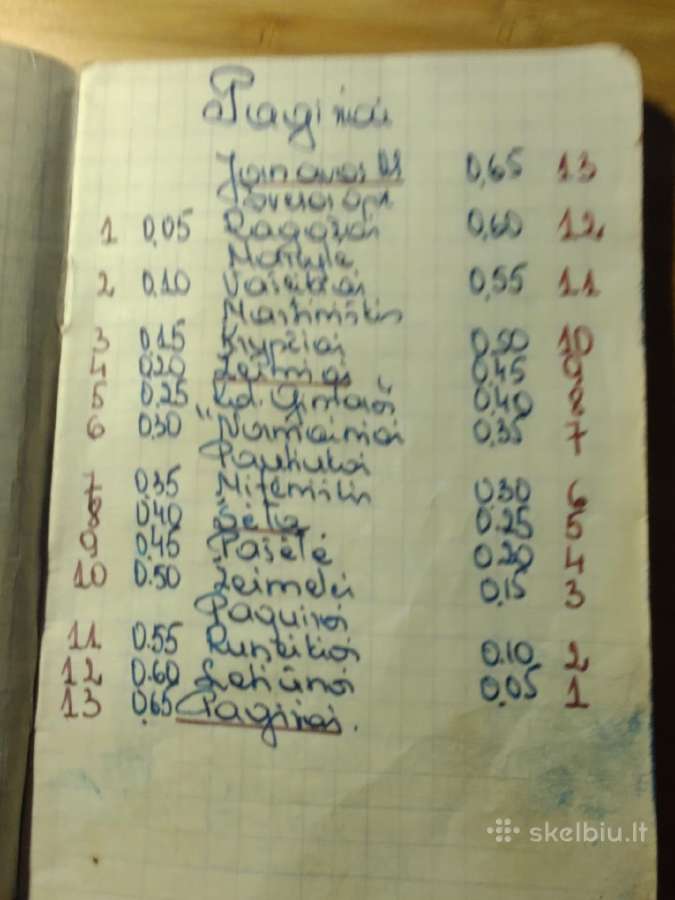 Paginiai
Jonavos as 0,65 13
1 0,05 Ragožiai 0,60 12
Martylė
2 0,10 0,55 11
Martiniškis
3 0,15 0,50 10
4 0,20 Žeimiai 0,45 9
5 0,25 0,40 8
6 0,30 Normainiai 0,35 7
Pauliukai
7 0,35 Milemiškis 0,30 6
8 0,40 Šėta 0,25 5
9 0,45 Pašėtė 0,20 4
10 0.50 Žeimeliai 0,15 3
Paquiriai
11 0.55 Runeikiai 0.10 2
12 0.60 0.05 1
13 0,65 Paginiai.
skelbiu.lt